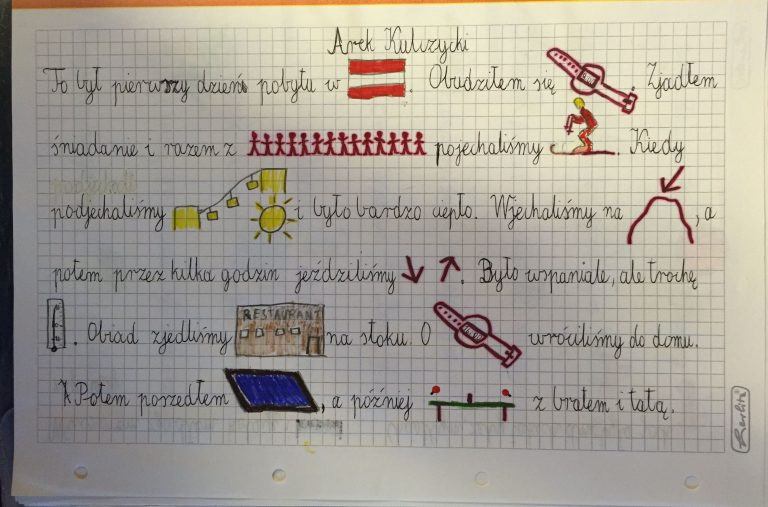 Arek Kulczycki
To był pierwszy dzień pobytu w . Obudziłem się Zjadłem
śniadanie i razem z pojechaliśmy . Kiedy
podjechaliśmy i było bardzo ciepło. Wjechaliśmy na , a
potem przez kilka godzin jeździliśmy . Było wspaniale, ale trochę
. Obiad zjedliśmy RESTAURANT na stoku. O wróciliśmy do domu.
Potem poszedłem , a później z bratem i tatą.